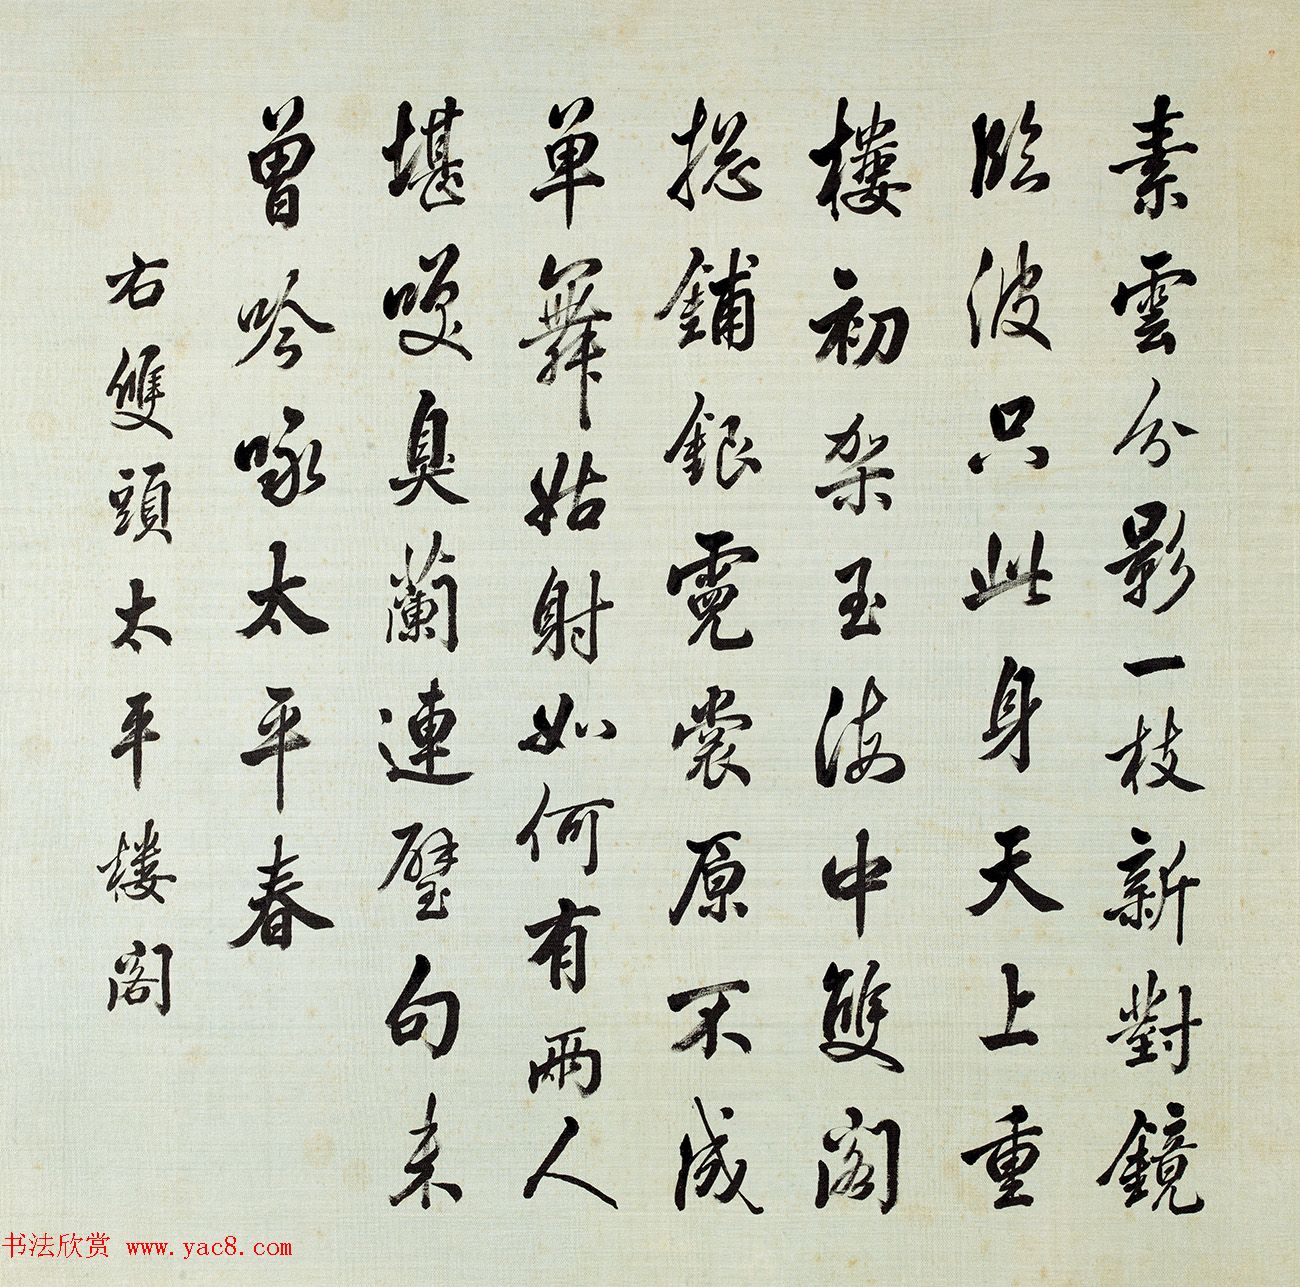 素雲分影一枝新對鏡
臨波只此身天上重
樓初架玉海中雙閣
捴鋪銀霓裳原不成
单舞姑射如何有兩人
堪臭蘭連璧句未
曾吟咏太平春
右雙頭太平樓閣
书法欣赏 www.yac8.com